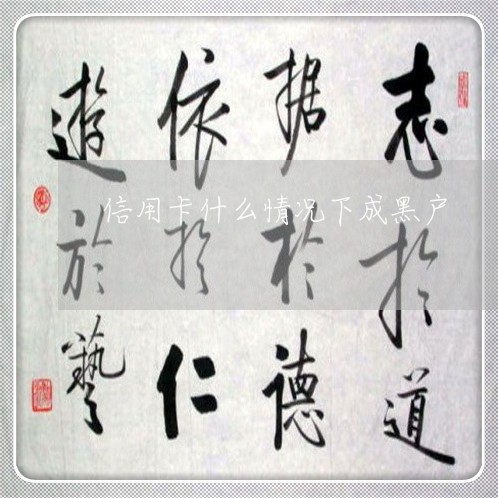 志於道
据於德
依於仁
遊於藝
信用卡什么情况下成黑户